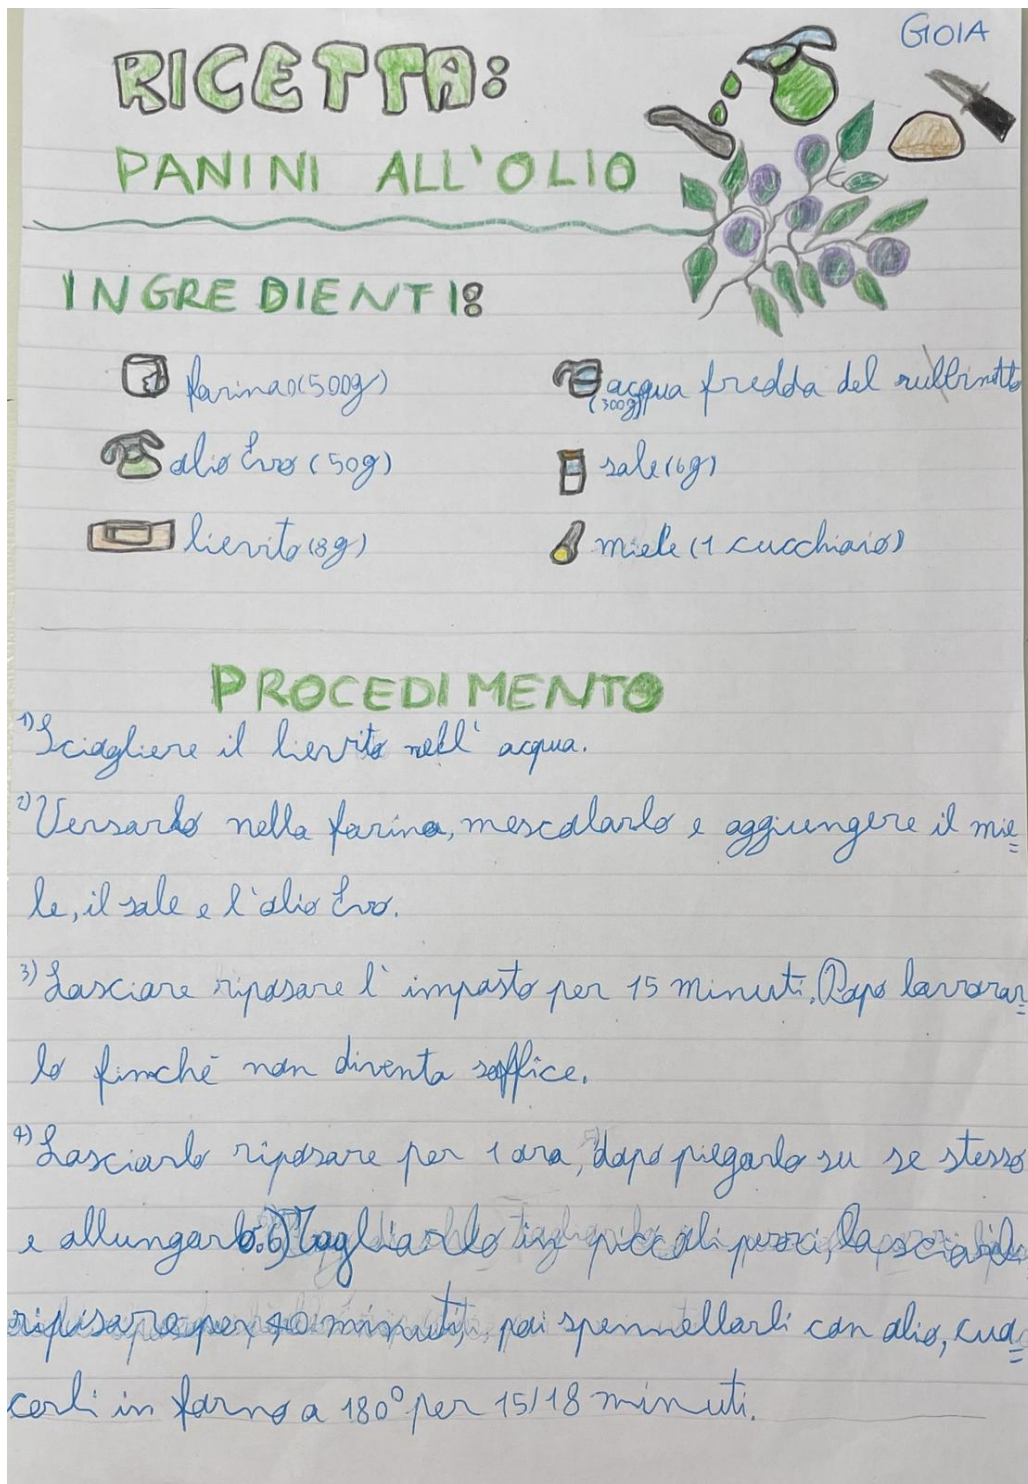 GIOIA
RICETTA:
PANINI ALL'OLIO
INGREDIENTI:
farina (500g)
acqua fredda del rubbinetto
(300g)
olio Evo (50g)
sale (6g)
lievito (8g)
miele (1 cucchiaio)
PROCEDIMENTO
1) Sciogliere il lievito nell' acqua.
2) Versarlo nella farina, mescolarlo e aggiungere il mie=
le, il sale e l'olio Evo.
3) Lasciare riposare l' impasto per 15 minuti. Dopo lavorar=
lo finché non diventa soffice.
4) Lasciarlo riposare per 1 ora, 5) dopo piegarlo su se stesso
e allungarlo. 6) Tagliarlo in piccoli pezzi, lasciarli
riposare per 40 minuti, poi spennellarli con olio, cuo=
cerli in forno a 180° per 15/18 minuti.